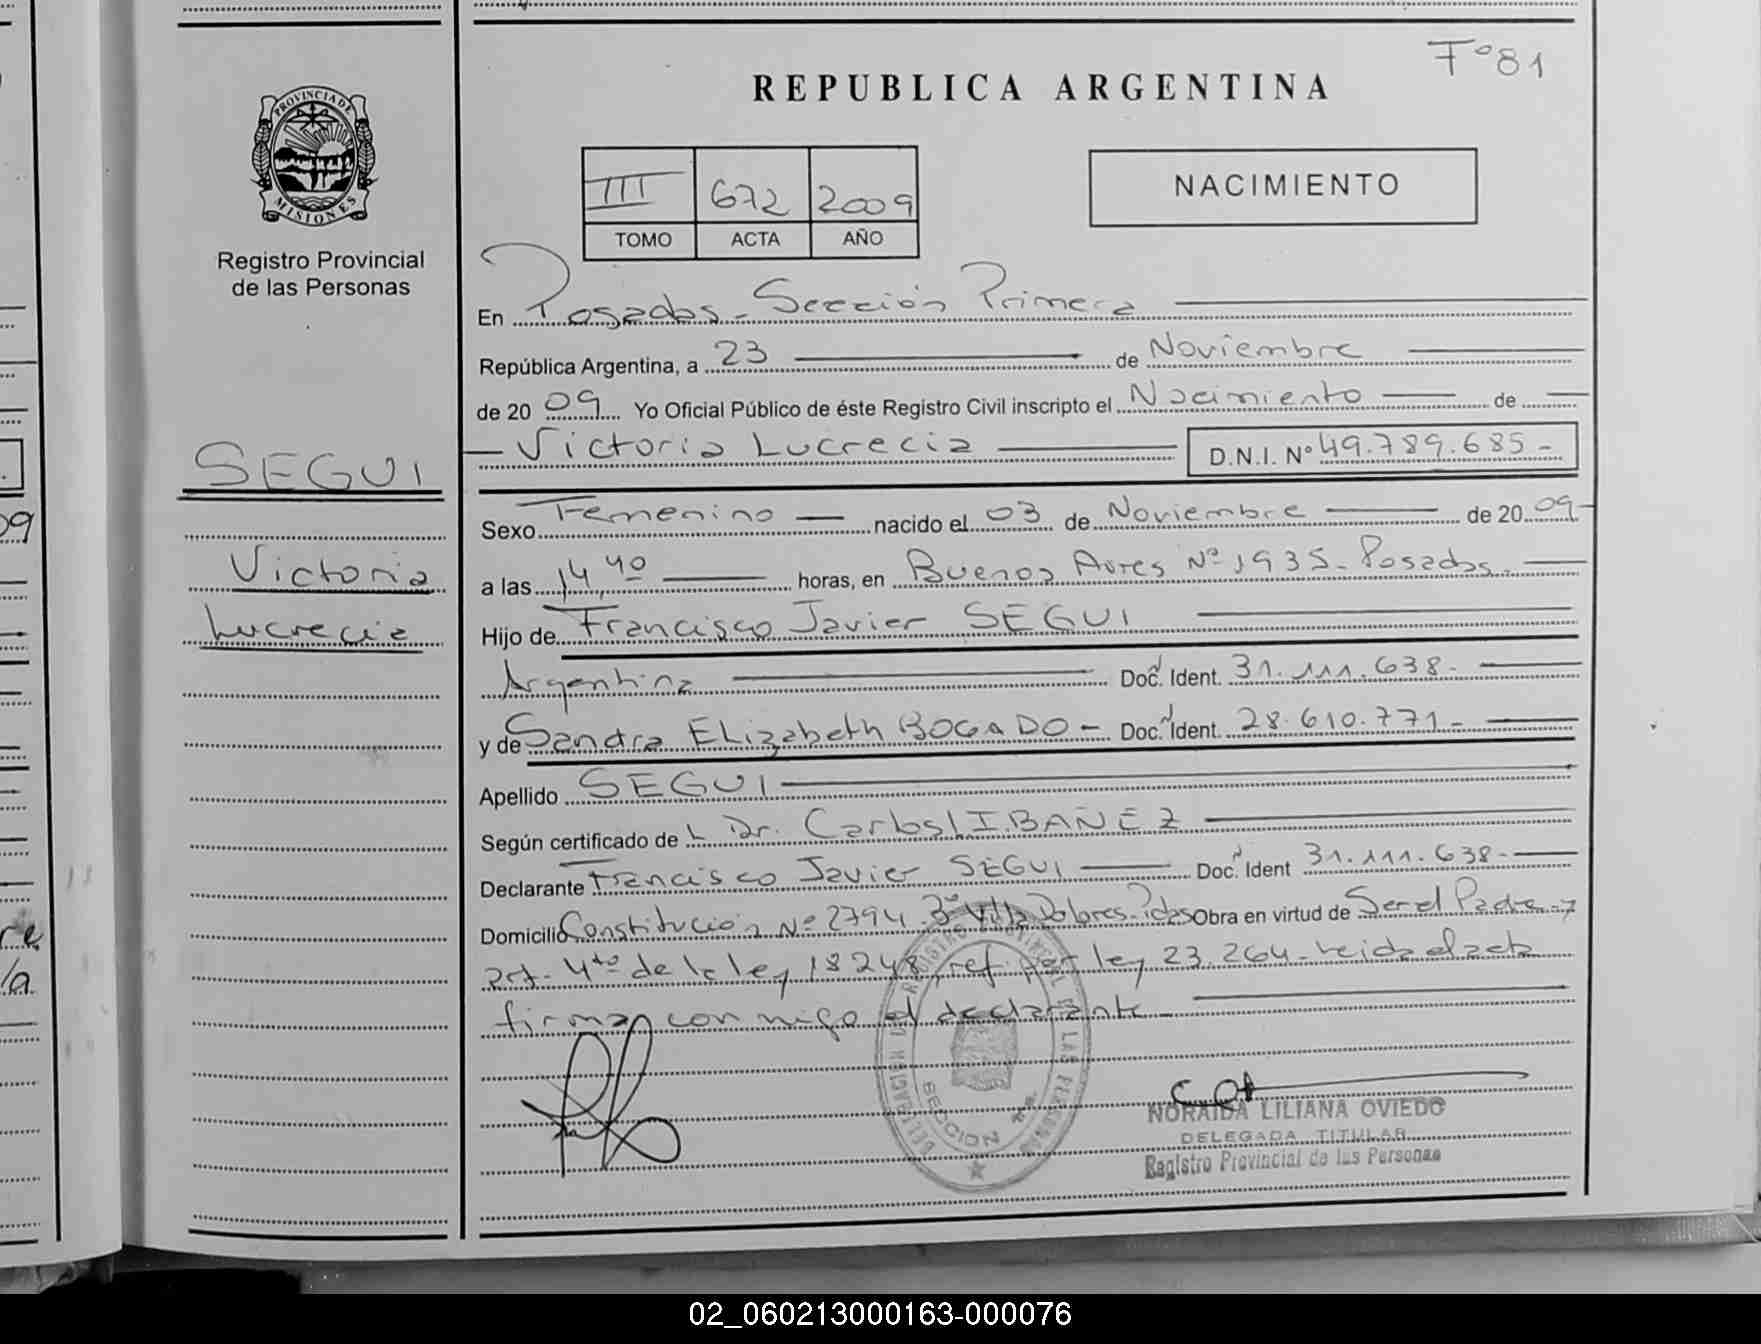 F°81
REPUBLICA ARGENTINA
PROVINCIA DE
MISIONES
Registro Provincial
de las Personas
III 672 2009
TOMO ACTA AÑO
NACIMIENTO
En Posadas - Sección Primera
República Argentina, a 23 de Noviembre
de 20 09 Yo Oficial Público de éste Registro Civil inscripto el Nacimiento de
Victoria Lucrecia D.N.I. N° 49.789.685-
SEGUI
Victoria
Lucrecia
Sexo Femenino nacido el 03 de Noviembre de 20 09-
a las 14,40 horas, en Buenos Aires Nº 1935 - Posadas.
Hijo de Francisco Javier SEGUI
Argentina Doc. Ident. 31.111.638-
y de Sandra ELizabeth BOGADO - Doc. Ident. 28.610.771-
Apellido SEGUI
Según certificado de L Dr. Carlos I. BAÑEZ
Declarante Francisco Javier SEGUI Doc. Ident 31.111.638-
Domicilio Constitución Nº 2794 Bº Villa Dolores-Pdas Obra en virtud de Ser el Padre-y
art. 4to de la ley 18248, ref. por ley 23.264-leida el acta
firma con migo el declarante-
SECCION 1ra.
NORAIDA LILIANA OVIEDO
DELEGADA TITULAR
Registro Provincial de las Personas
09
02_060213000163-000076